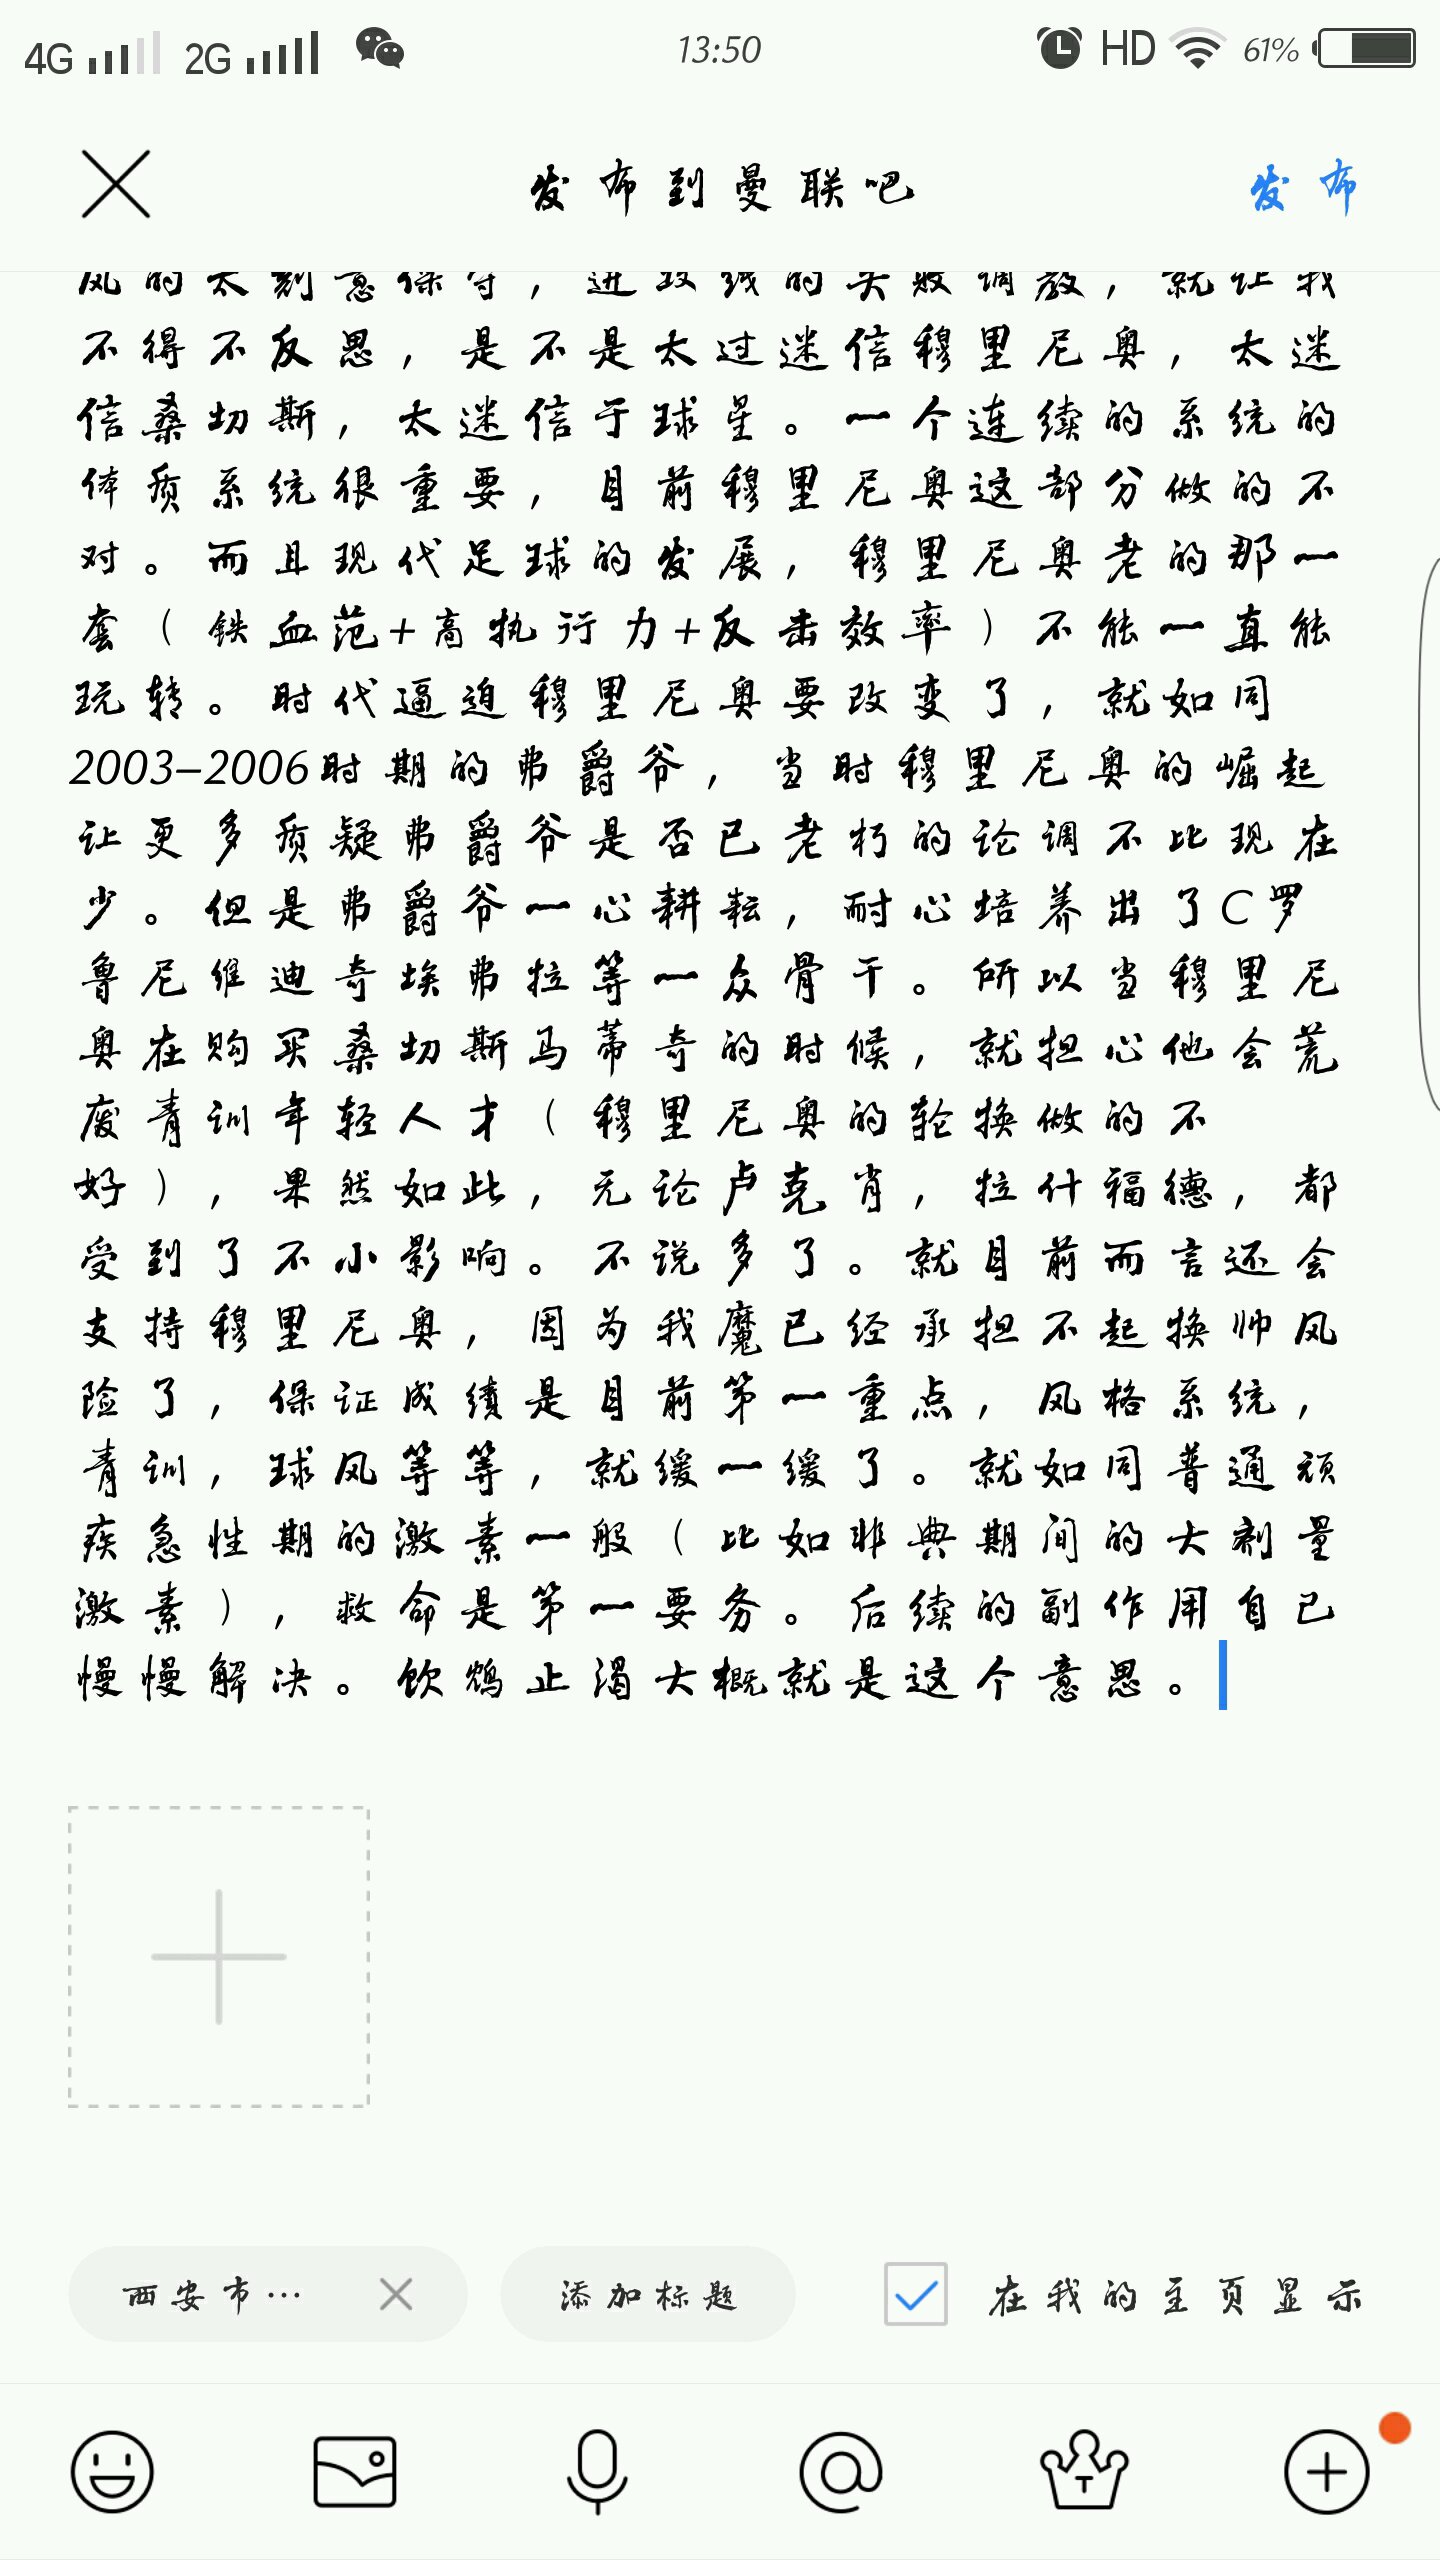 4G 2G 13:50 HD 61%
发布到曼联吧 发布
风的太刻意保守，进攻线的失败调教，就让我
不得不反思，是不是太过迷信穆里尼奥，太迷
信桑切斯，太迷信于球星。一个连续的系统的
体质系统很重要，目前穆里尼奥这部分做的不
对。而且现代足球的发展，穆里尼奥老的那一
套（铁血范+高执行力+反击效率）不能一直能
玩转。时代逼迫穆里尼奥要改变了，就如同
2003-2006时期的弗爵爷，当时穆里尼奥的崛起
让更多质疑弗爵爷是否已老朽的论调不比现在
少。但是弗爵爷一心耕耘，耐心培养出了C罗
鲁尼维迪奇埃弗拉等一众骨干。所以当穆里尼
奥在购买桑切斯马蒂奇的时候，就担心他会荒
废青训年轻人才（穆里尼奥的轮换做的不
好），果然如此，无论卢克肖，拉什福德，都
受到了不小影响。不说多了。就目前而言还会
支持穆里尼奥，因为我魔已经承担不起换帅风
险了，保证成绩是目前第一重点，风格系统，
青训，球风等等，就缓一缓了。就如同普通顽
疾急性期的激素一般（比如非典期间的大剂量
激素），救命是第一要务。后续的副作用自己
慢慢解决。饮鸩止渴大概就是这个意思。
西安市… 添加标题 在我的主页显示